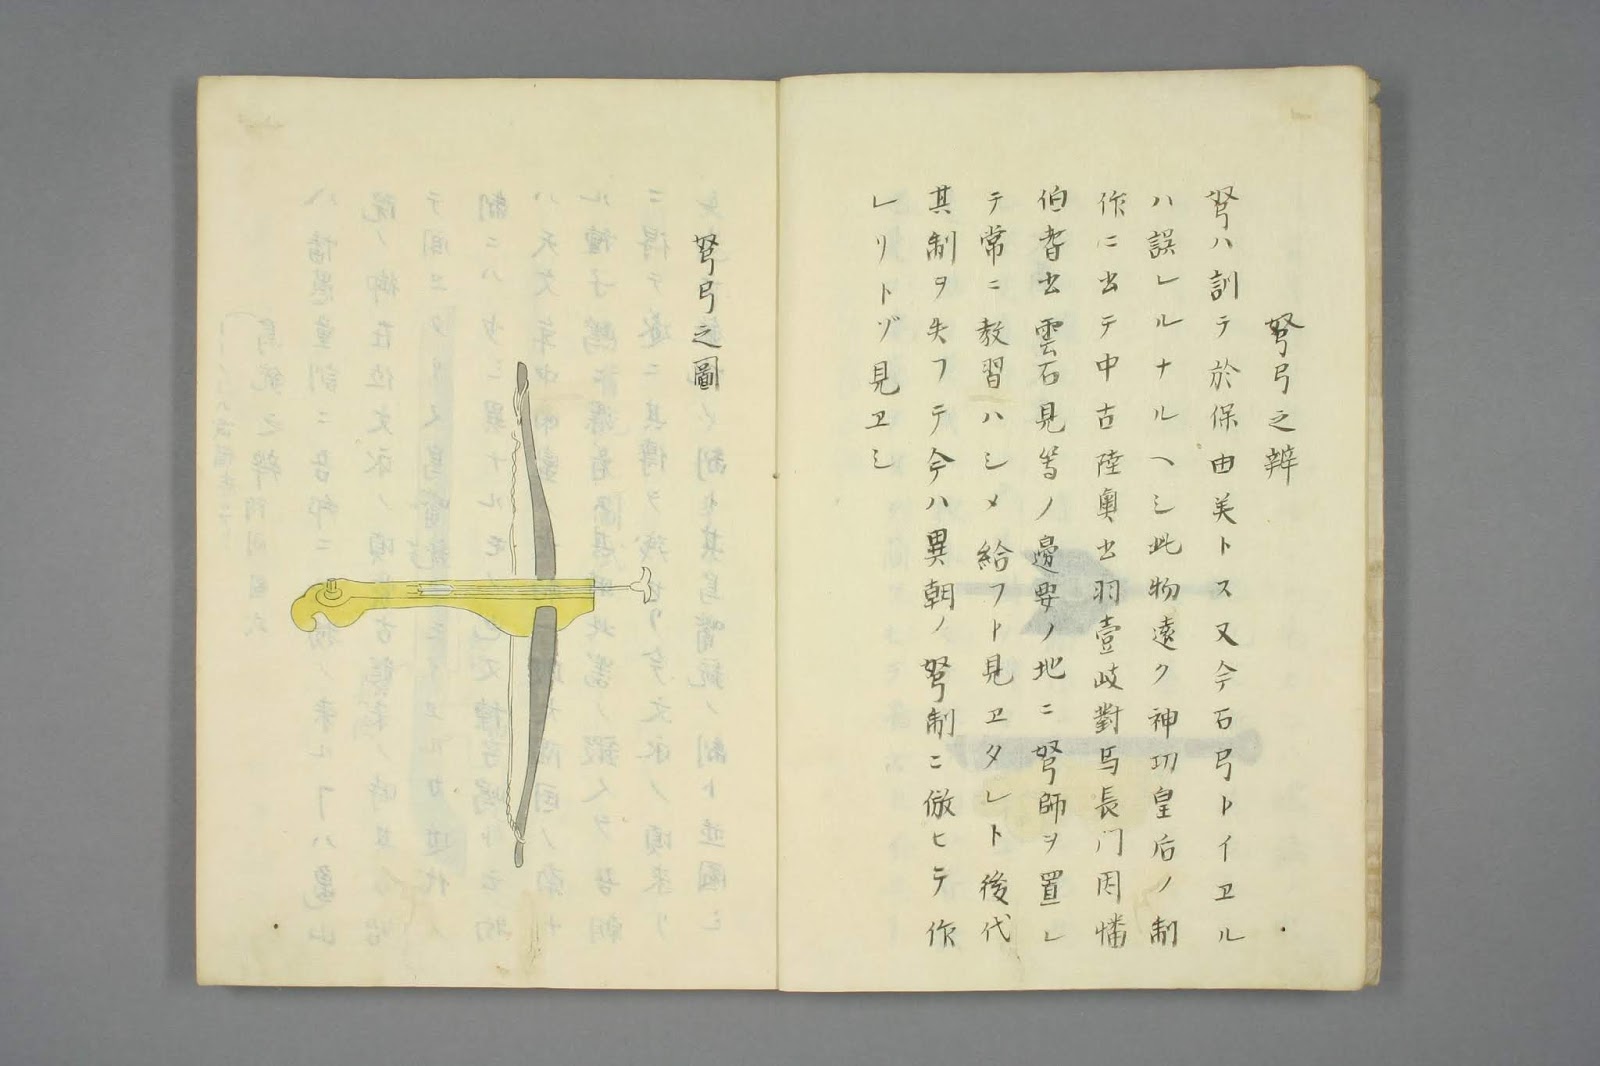 弩弓之辨
弩ハ訓テ於保由美トス又今石弓トイヱル
ハ誤レルナルヘシ此物遠ク神功皇后ノ制
作ニ出テ中古陸奥出羽壹岐對馬長门因幡
伯耆出雲石見等ノ邊要ノ地ニ弩師ヲ置レ
テ常ニ教習ハシメ給フト見ヱタレト後代
其制ヲ失フテ今ハ異朝ノ弩制ニ倣ヒテ作
レリトゾ見ヱシ
弩弓之圖